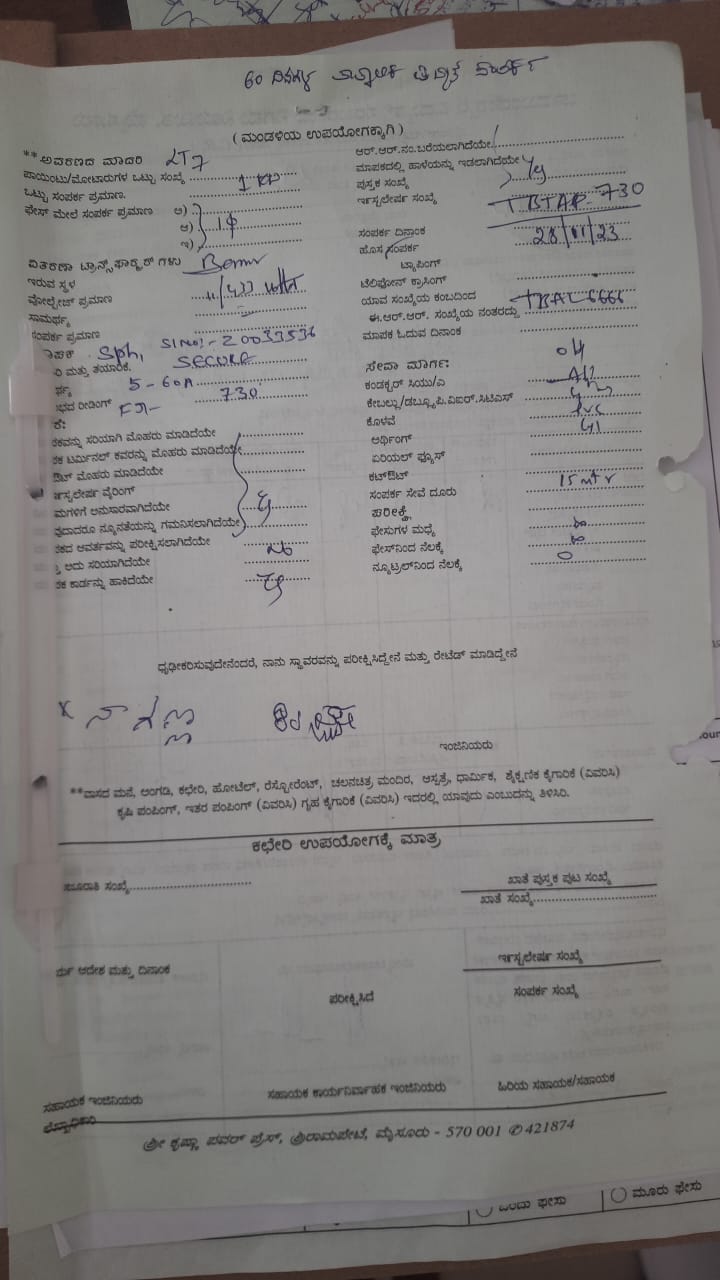 60 ದಿನಗಳ ತಾತ್ಕಾಲಿಕ ವಿದ್ಯುತ್ ಸಂಪರ್ಕ
( ಮಂಡಳಿಯ ಉಪಯೋಗಕ್ಕಾಗಿ )
**ಅವರಣದ ಮಾದರಿ LT7
ಪಾಯಿಂಟು/ಮೋಟಾರುಗಳ ಒಟ್ಟು ಸಂಖ್ಯೆ 1 KW
ಒಟ್ಟು ಸಂಪರ್ಕ ಪ್ರಮಾಣ.
ಫೇಸ್ ಮೇಲೆ ಸಂಪರ್ಕ ಪ್ರಮಾಣ ಅ)
ಆ) 1ф
ಇ)
ವಿತರಣಾ ಟ್ರಾನ್ಸ್‌ಫಾರ್ಮರ್ ಗಳು
ಇರುವ ಸ್ಥಳ
ವೋಲ್ಟೇಜ್ ಪ್ರಮಾಣ 11/433 Volt
ಸಾಮರ್ಥ್ಯ
ಸಂಪರ್ಕ ಪ್ರಮಾಣ
ಾಪಕ Sph, Sl No:- 20033536
ಿ ಮತ್ತು ತಯಾರಿಕೆ. SECURE
ರ್ಥ್ಯ 5-60A
ಭದ ರೀಡಿಂಗ್ FR- 730
ಕೆ:
ಕವನ್ನು ಸರಿಯಾಗಿ ಮೊಹರು ಮಾಡಿದೆಯೇ
ಕ ಟರ್ಮಿನಲ್ ಕವರನ್ನು ಮೊಹರು ಮಾಡಿದೆಯೇ
ಔಟ್ ಮೊಹರು ಮಾಡಿದೆಯೇ
ರ್ಇನ್ಸ್ಟಲೇಷನ್ ವೈರಿಂಗ್
ಮಗಳಿಗೆ ಅನುಸಾರವಾಗಿದೆಯೇ
ವುದಾದರೂ ನ್ಯೂನತೆಯನ್ನು ಗಮನಿಸಲಾಗಿದೆಯೇ
ಕದ ಆವರ್ತವನ್ನು ಪರೀಕ್ಷಿಸಲಾಗಿದೆಯೇ
, ಅದು ಸರಿಯಾಗಿದೆಯೇ No
ಕ ಕಾರ್ಡನ್ನು ಹಾಕಿದೆಯೇ
ಆರ್.ಆರ್.ನಂ.ಬರೆಯಲಾಗಿದೆಯೇ
ಮಾಪಕದಲ್ಲಿ ಹಾಳೆಯನ್ನು ಇಡಲಾಗಿದೆಯೇ
ಪುಸ್ತಕ ಸಂಖ್ಯೆ
ಇನ್ಸ್ಟಲೇಷನ್ ಸಂಖ್ಯೆ TBTAP-730
ಸಂಪರ್ಕ ದಿನಾಂಕ 28/11/23
ಹೊಸ ಸಂಪರ್ಕ
ಟ್ಯಾಪಿಂಗ್
ಟೆಲಿಫೋನ್ ಕ್ರಾಸಿಂಗ್
ಯಾವ ಸಂಖ್ಯೆಯ ಕಂಬದಿಂದ TBAL6666
ಈ.ಆರ್.ಆರ್. ಸಂಖ್ಯೆಯ ನಂತರದ್ದು
ಮಾಪಕ ಓದುವ ದಿನಾಂಕ
ಸೇವಾ ಮಾರ್ಗ: OH
ಕಂಡಕ್ಟರ್ ಸಿಯು/ಎ
ಕೇಬಲ್ಲು/ಡಬ್ಲ್ಯೂ.ಪಿ.ಐಆರ್.ಸಿಟಿಎಸ್
ಕೊಳವೆ PVC
ಅರ್ಥಿಂಗ್ GI
ಏರಿಯಲ್ ಫ್ಯೂಸ್
ಕಟ್‌ಔಟ್
ಸಂಪರ್ಕ ಸೇವೆ ದೂರು 15 mtr
ಪರೀಕ್ಷೆ
ಫೇಸುಗಳ ಮಧ್ಯೆ
ಫೇಸ್‌ನಿಂದ ನೆಲಕ್ಕೆ
ನ್ಯೂಟ್ರಲ್‌ನಿಂದ ನೆಲಕ್ಕೆ 0
ಧೃಢೀಕರಿಸುವುದೇನೆಂದರೆ, ನಾನು ಸ್ಥಾವರವನ್ನು ಪರೀಕ್ಷಿಸಿದ್ದೇನೆ ಮತ್ತು ರೇಟೆಡ್ ಮಾಡಿದ್ದೇನೆ
x ನಾಗಣ್ಣ
ಇಂಜಿನಿಯರು
**ವಾಸದ ಮನೆ, ಅಂಗಡಿ, ಕಛೇರಿ, ಹೋಟೆಲ್, ರೆಸ್ಟೋರೆಂಟ್, ಚಲನಚಿತ್ರ ಮಂದಿರ, ಆಸ್ಪತ್ರೆ, ಧಾರ್ಮಿಕ, ಶೈಕ್ಷಣಿಕ ಕೈಗಾರಿಕೆ (ವಿವರಿಸಿ)
ಕೃಷಿ ಪಂಪಿಂಗ್, ಇತರ ಪಂಪಿಂಗ್ (ವಿವರಿಸಿ) ಗೃಹ ಕೈಗಾರಿಕೆ (ವಿವರಿಸಿ) ಇದರಲ್ಲಿ ಯಾವುದು ಎಂಬುದನ್ನು ತಿಳಿಸಿರಿ.
ಕಛೇರಿ ಉಪಯೋಗಕ್ಕೆ ಮಾತ್ರ
ಜೂರಾತಿ ಸಂಖ್ಯೆ
ಖಾತೆ ಪುಸ್ತಕ ಪುಟ ಸಂಖ್ಯೆ
ಖಾತೆ ಸಂಖ್ಯೆ
ರ್ಯ ಆದೇಶ ಮತ್ತು ದಿನಾಂಕ
ಪರೀಕ್ಷಿಸಿದೆ
ಇನ್ಸ್ಟಲೇಷನ್ ಸಂಖ್ಯೆ
ಸಂಪರ್ಕ ಸಂಖ್ಯೆ
ಸಹಾಯಕ ಇಂಜಿನಿಯರು
ಮೇಲ್ವಿಚಾರಕ
ಸಹಾಯಕ ಕಾರ್ಯನಿರ್ವಾಹಕ ಇಂಜಿನಿಯರು
ಹಿರಿಯ ಸಹಾಯಕ/ಸಹಾಯಕ
ಶ್ರೀ ಕೃಷ್ಣಾ ಪವರ್ ಪ್ರೆಸ್, ಶ್ರೀರಾಮಪೇಟೆ, ಮೈಸೂರು - 570 001 ✆ 421874
ಒಂದು ಫೇಸು
ಮೂರು ಫೇಸು